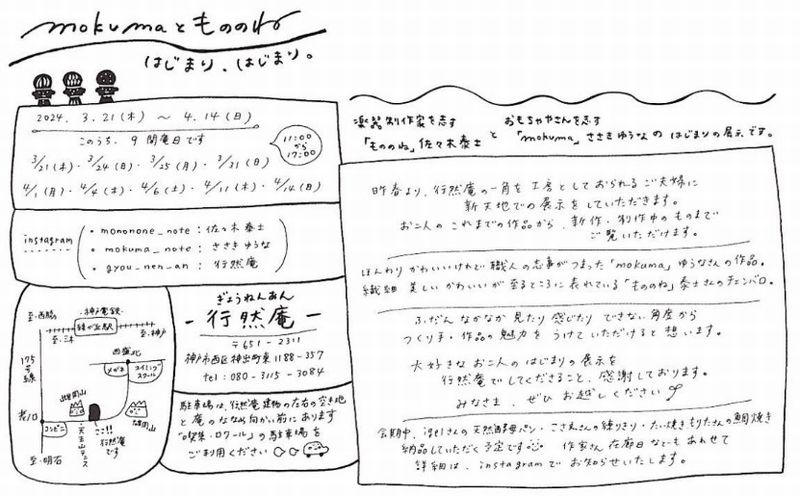 mokumaともののね
はじまり、はじまり。
2024. 3.21(木) 〜 4.14(日)
このうち、9 開庵日です
11:00
から
17:00
3/21(木)・3/24(日)・3/25(月)・3/31(日)
4/1(月)・4/4(木)・4/6(土)・4/11(木)・4/14(日)
instagram
・mononone_note : 佐々木 泰士
・mokuma_note : ささき ゆうな
・gyou_nen_an : 行然庵
至・西脇
神戸電鉄
緑が丘駅
至・三木
至・神戸
175号線
西盛北
メガネ
スイミングスクール
雌岡山
雄岡山
老ノ口
コンビニ
天王山テニス
ここ!!
行然庵
です
至・明石
ぎょうねんあん
- 行然庵 -
〒651-2311
神戸市西区神出町東1188-357
tel : 080-3115-3084
駐車場は、行然庵建物の左右の空き地
と 庵のななめ向かい前にあります
「喫茶・ロクール」の駐車場を
ご利用ください
楽器製作家を志す
「もののね」佐々木泰士
と
おもちゃやさんを志す
「mokuma」ささきゆうなの はじまりの展示です。
昨春より、行然庵の一角を工房としておられるご夫婦に
新天地での展示をしていただきます。
お二人の これまでの作品から、新作・制作中のものまで
ご覧いただけます。
ほんわり かわいいけれど 職人の志事がつまった「mokuma」ゆうなさんの作品。
繊細 美しい かわいいが 至るところに表れている「もののね」泰士さんのチェンバロ。
ふだん なかなか 見たり 感じたり できない 角度から
つくり手・作品の魅力を うけていただけると想います。
大好きな お二人の はじまりの展示を
行然庵でしてくださること、感謝しております。
みなさま ぜひ お越しください
会期中、igelさんの天然酵母パン・こさえんの練りきり・たい焼き もりたさんの鯛焼き
納品していただく予定です 作家さん 在廊日なども あわせて
詳細は、instagramで お知らせいたします。